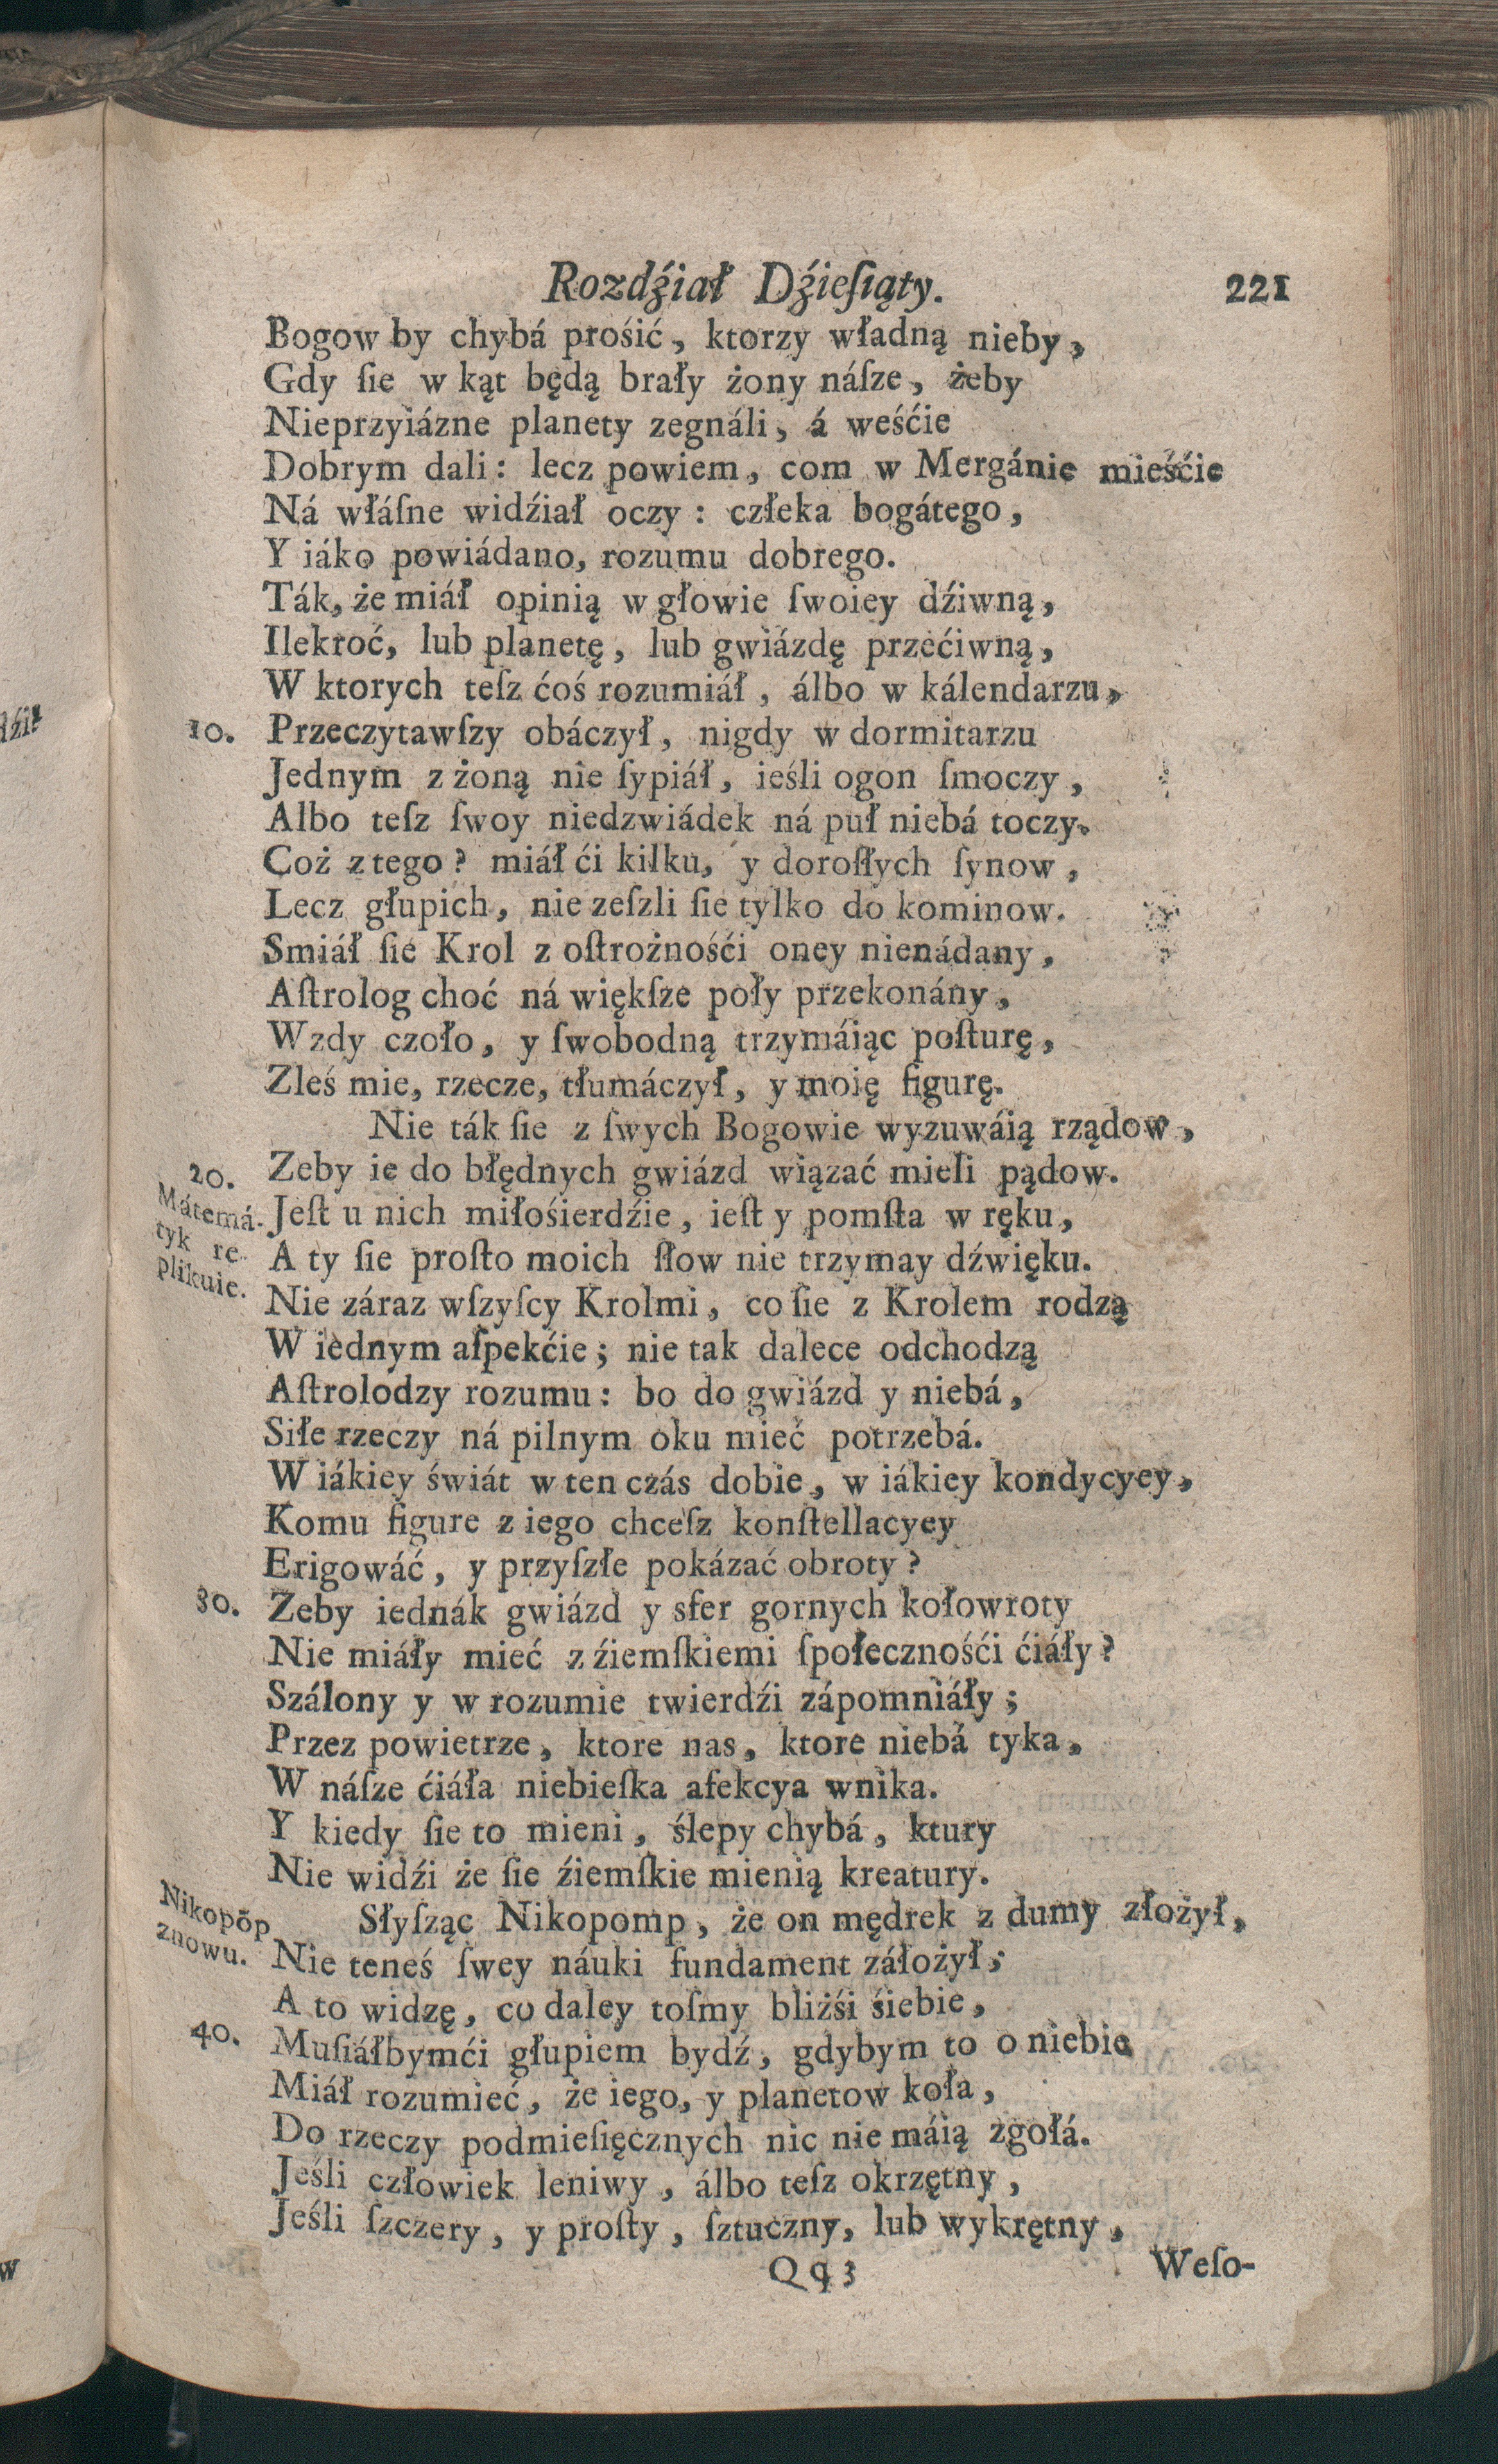 Rozdźiał Dźieſiąty. 221
Bogow by chybá prośić, ktorzy władną nieby,
Gdy ſie w kąt będą brały żony náſze, żeby
Nieprzyiázne planety zegnáli, á weśćie
Dobrym dali: lecz powiem, com w Mergánie mieśćie
Ná włáſne widźiał oczy: człeka bogátego,
Y iáko powiádano, rozumu dobrego.
Ták, że miáł opinią w głowie ſwoiey dźiwną,
Ilekroć, lub planetę, lub gwiázdę przećiwną,
W ktorych teſz ćoś rozumiáł, álbo w kálendarzu,
10. Przeczytawſzy obáczył, nigdy w dormitarzu
Jednym z żoną nie ſypiáł, ieśli ogon ſmoczy,
Albo teſz ſwoy niedzwiádek ná puł niebá toczy.
Coż z tego? miáł ći kilku, y doroſłych ſynow,
Lecz głupich, nie zeſzli ſie tylko do kominow.
Smiáł ſie Krol z oſtrożnośći oney nienádany,
Aſtrolog choć ná więkſze poły przekonány,
Wzdy czoło, y ſwobodną trzymáiąc poſturę,
Zleś mie, rzecze, tłumáczył, y moię figurę.
Nie ták ſie z ſwych Bogowie wyzuwáią rządow,
20. Zeby ie do błędnych gwiázd wiązać mieli pądow.
Mátemá-
tyk re-
plikuie.
Jeſt u nich miłośierdźie, ieſt y pomſta w ręku,
A ty ſie proſto moich ſłow nie trzymay dźwięku.
Nie záraz wſzyſcy Krolmi, co ſie z Krolem rodzą
W iednym aſpekćie; nie tak dalece odchodzą
Aſtrolodzy rozumu: bo do gwiázd y niebá,
Siłe rzeczy ná pilnym oku mieć potrzebá.
W iákiey świát w ten czás dobie, w iákiey kondycyey,
Komu figure z iego chceſz konſtellacyey
Erigowáć, y przyſzłe pokázać obroty?
30. Zeby iednák gwiázd y sfer gornych kołowroty
Nie miáły mieć z źiemſkiemi ſpołecznośći ćiáły?
Szálony y w rozumie twierdźi zápomniáły;
Przez powietrze, ktore nas, ktore niebá tyka,
W náſze ćiáła niebieſka afekcya wnika.
Y kiedy ſie to mieni, ślepy chybá, ktury
Nie widźi że ſie źiemſkie mienią kreatury.
Nikopōp
znowu.
Słyſząc Nikopomp, że on mędrek z dumy złożył,
Nie teneś ſwey náuki fundament záłożył;
A to widzę, co daley toſmy bliżśi śiebie,
40. Muſiáłbymći głupiem bydź, gdybym to o niebie
Miáł rozumieć, że iego, y planetow koła,
Do rzeczy podmieſięcznych nic nie máią zgołá.
Jeśli człowiek leniwy, álbo teſz okrzętny,
Jeśli ſzczery, y proſty, ſztuczny, lub wykrętny,
Qq3 Weſo-